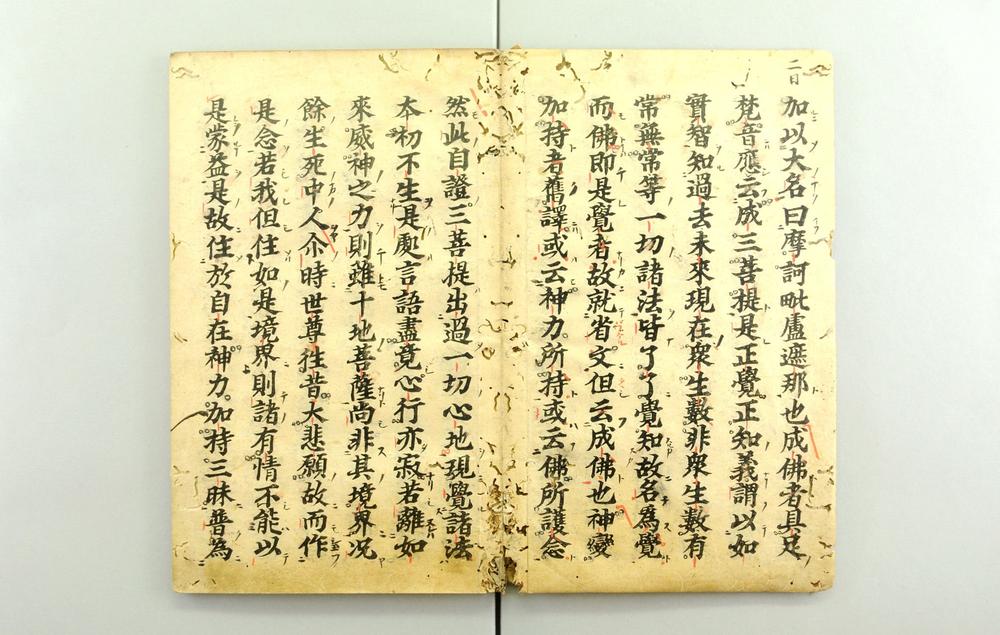 二日
加以大名曰摩訶毗盧遮那也成佛者具足
梵音應云成三菩提是正覺正知義謂以如
實智知過去未來現在衆生數非衆生數有
常無常等一切諸法皆了了覺知故名為覺
而佛即是覺者故就省文但云成佛也神變
加持者舊譯或云神力所持或云佛所護念
然此自證三菩提出過一切心地現覺諸法
本初不生是處言語盡竟心行亦寂若離如
來威神之力則雖十地菩薩尚非其境界况
餘生死中人尒時世尊徃昔大悲願故而作
是念若我但住如是境界則諸有情不能以
是蒙益是故住於自在神力加持三昧普為